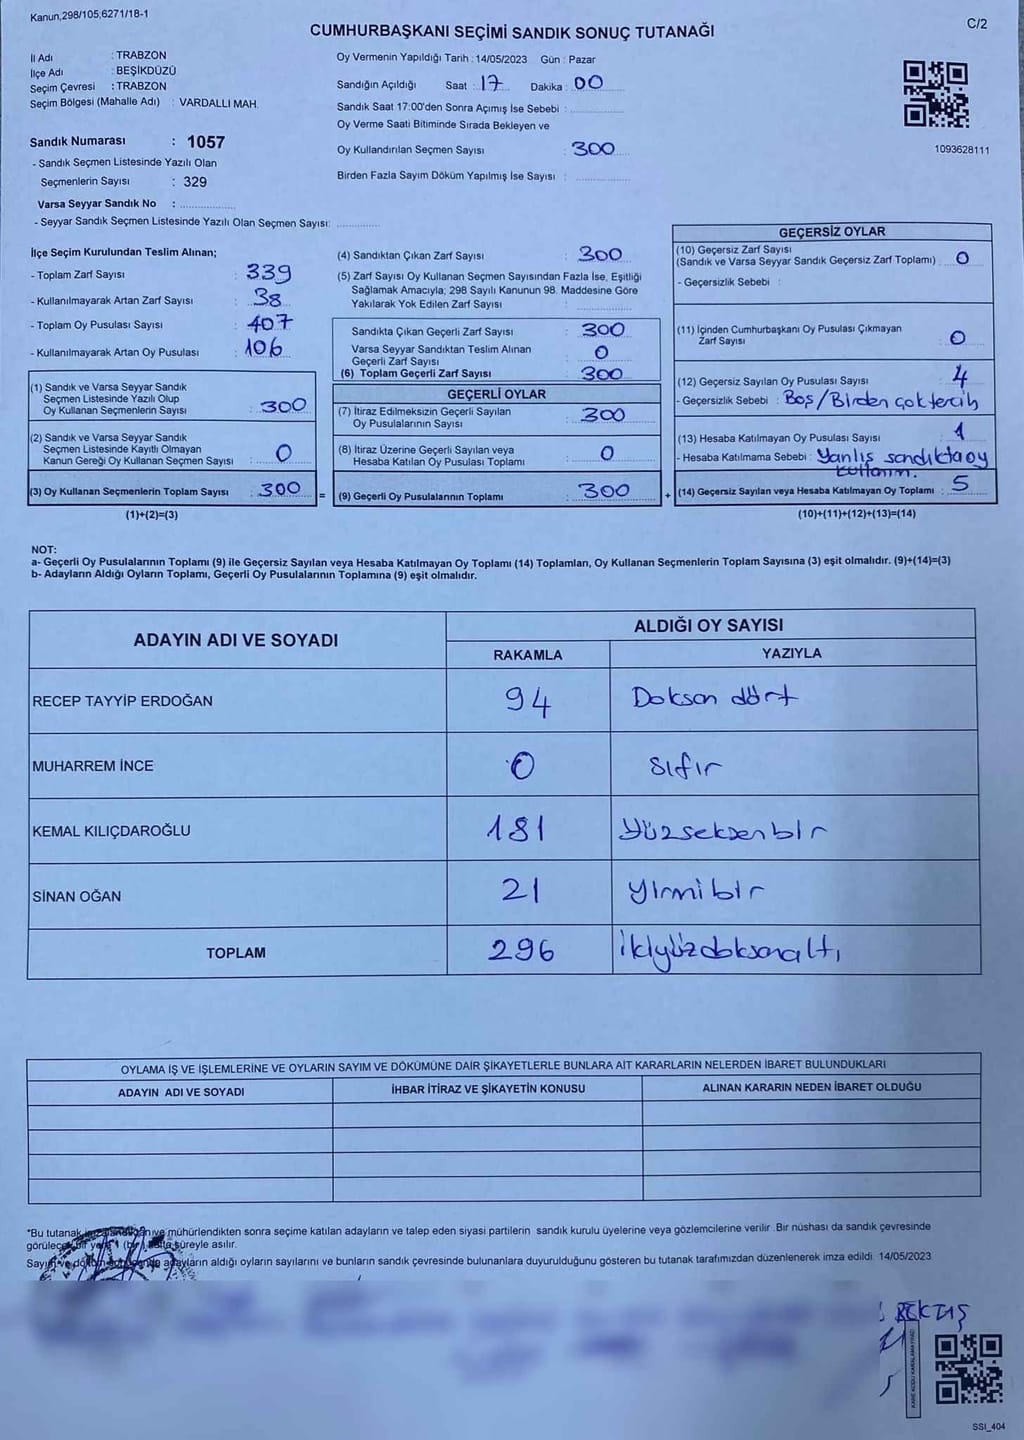 Kanun,298/105,6271/18-1
C/2
CUMHURBAŞKANI SEÇİMİ SANDIK SONUÇ TUTANAĞI
İl Adı : TRABZON
İlçe Adı : BEŞİKDÜZÜ
Seçim Çevresi : TRABZON
Seçim Bölgesi (Mahalle Adı) : VARDALLI MAH.
Sandık Numarası : 1057
- Sandık Seçmen Listesinde Yazılı Olan
Seçmenlerin Sayısı : 329
Varsa Seyyar Sandık No :
- Seyyar Sandık Seçmen Listesinde Yazılı Olan Seçmen Sayısı:
Oy Vermenin Yapıldığı Tarih : 14/05/2023 Gün : Pazar
Sandığın Açıldığı Saat : 17 Dakika : 00
Sandık Saat 17:00'den Sonra Açımış İse Sebebi :
Oy Verme Saati Bitiminde Sırada Bekleyen ve
Oy Kullandırılan Seçmen Sayısı : 300
Birden Fazla Sayım Döküm Yapılmış İse Sayısı :
1093628111
İlçe Seçim Kurulundan Teslim Alınan;
- Toplam Zarf Sayısı : 339
- Kullanılmayarak Artan Zarf Sayısı : 38
- Toplam Oy Pusulası Sayısı : 407
- Kullanılmayarak Artan Oy Pusulası : 106
(1) Sandık ve Varsa Seyyar Sandık
Seçmen Listesinde Yazılı Olup
Oy Kullanan Seçmenlerin Sayısı : 300
(2) Sandık ve Varsa Seyyar Sandık
Seçmen Listesinde Kayıtlı Olmayan
Kanun Gereği Oy Kullanan Seçmen Sayısı : 0
(3) Oy Kullanan Seçmenlerin Toplam Sayısı : 300 =
(1)+(2)=(3)
(4) Sandıktan Çıkan Zarf Sayısı : 300
(5) Zarf Sayısı Oy Kullanan Seçmen Sayısından Fazla İse, Eşitliği
Sağlamak Amacıyla; 298 Sayılı Kanunun 98. Maddesine Göre
Yakılarak Yok Edilen Zarf Sayısı :
Sandıkta Çıkan Geçerli Zarf Sayısı : 300
Varsa Seyyar Sandıktan Teslim Alınan
Geçerli Zarf Sayısı : 0
(6) Toplam Geçerli Zarf Sayısı : 300
GEÇERLİ OYLAR
(7) İtiraz Edilmeksizin Geçerli Sayılan
Oy Pusulalarının Sayısı : 300
(8) İtiraz Üzerine Geçerli Sayılan veya
Hesaba Katılan Oy Pusulası Toplamı : 0
(9) Geçerli Oy Pusulalarının Toplamı : 300 +
GEÇERSİZ OYLAR
(10) Geçersiz Zarf Sayısı
(Sandık ve Varsa Seyyar Sandık Geçersiz Zarf Toplamı) : 0
- Geçersizlik Sebebi :
(11) İçinden Cumhurbaşkanı Oy Pusulası Çıkmayan
Zarf Sayısı : 0
(12) Geçersiz Sayılan Oy Pusulası Sayısı : 4
- Geçersizlik Sebebi : Boş/Birden çok tercih
(13) Hesaba Katılmayan Oy Pusulası Sayısı : 1
- Hesaba Katılmama Sebebi : Yanlış sandıkta oy
kullanım.
(14) Geçersiz Sayılan veya Hesaba Katılmayan Oy Toplamı : 5
(10)+(11)+(12)+(13)=(14)
NOT:
a- Geçerli Oy Pusulalarının Toplamı (9) ile Geçersiz Sayılan veya Hesaba Katılmayan Oy Toplamı (14) Toplamları, Oy Kullanan Seçmenlerin Toplam Sayısına (3) eşit olmalıdır. (9)+(14)=(3)
b- Adayların Aldığı Oyların Toplamı, Geçerli Oy Pusulalarının Toplamına (9) eşit olmalıdır.
ADAYIN ADI VE SOYADI ALDIĞI OY SAYISI
RAKAMLA YAZIYLA
RECEP TAYYİP ERDOĞAN 94 Doksan dört
MUHARREM İNCE 0 sıfır
KEMAL KILIÇDAROĞLU 181 Yüzseksenbir
SİNAN OĞAN 21 yirmibir
TOPLAM 296 ikiyüzdoksanaltı
OYLAMA İŞ VE İŞLEMLERİNE VE OYLARIN SAYIM VE DÖKÜMÜNE DAİR ŞİKAYETLERLE BUNLARA AİT KARARLARIN NELERDEN İBARET BULUNDUKLARI
ADAYIN ADI VE SOYADI İHBAR İTİRAZ VE ŞİKAYETİN KONUSU ALINAN KARARIN NEDEN İBARET OLDUĞU
*Bu tutanak ve mühürlendikten sonra seçime katılan adayların ve talep eden siyasi partilerin sandık kurulu üyelerine veya gözlemcilerine verilir. Bir nüshası da sandık çevresinde
görülecek bir yere (bir) hafta süreyle asılır.
Sayım ve döküm adayların aldığı oyların sayılarını ve bunların sandık çevresinde bulunanlara duyurulduğunu gösteren bu tutanak tarafımızdan düzenlenerek imza edildi. 14/05/2023
BEKTAŞ
KARE KODU KARALAMAYINIZ!
SSI_404